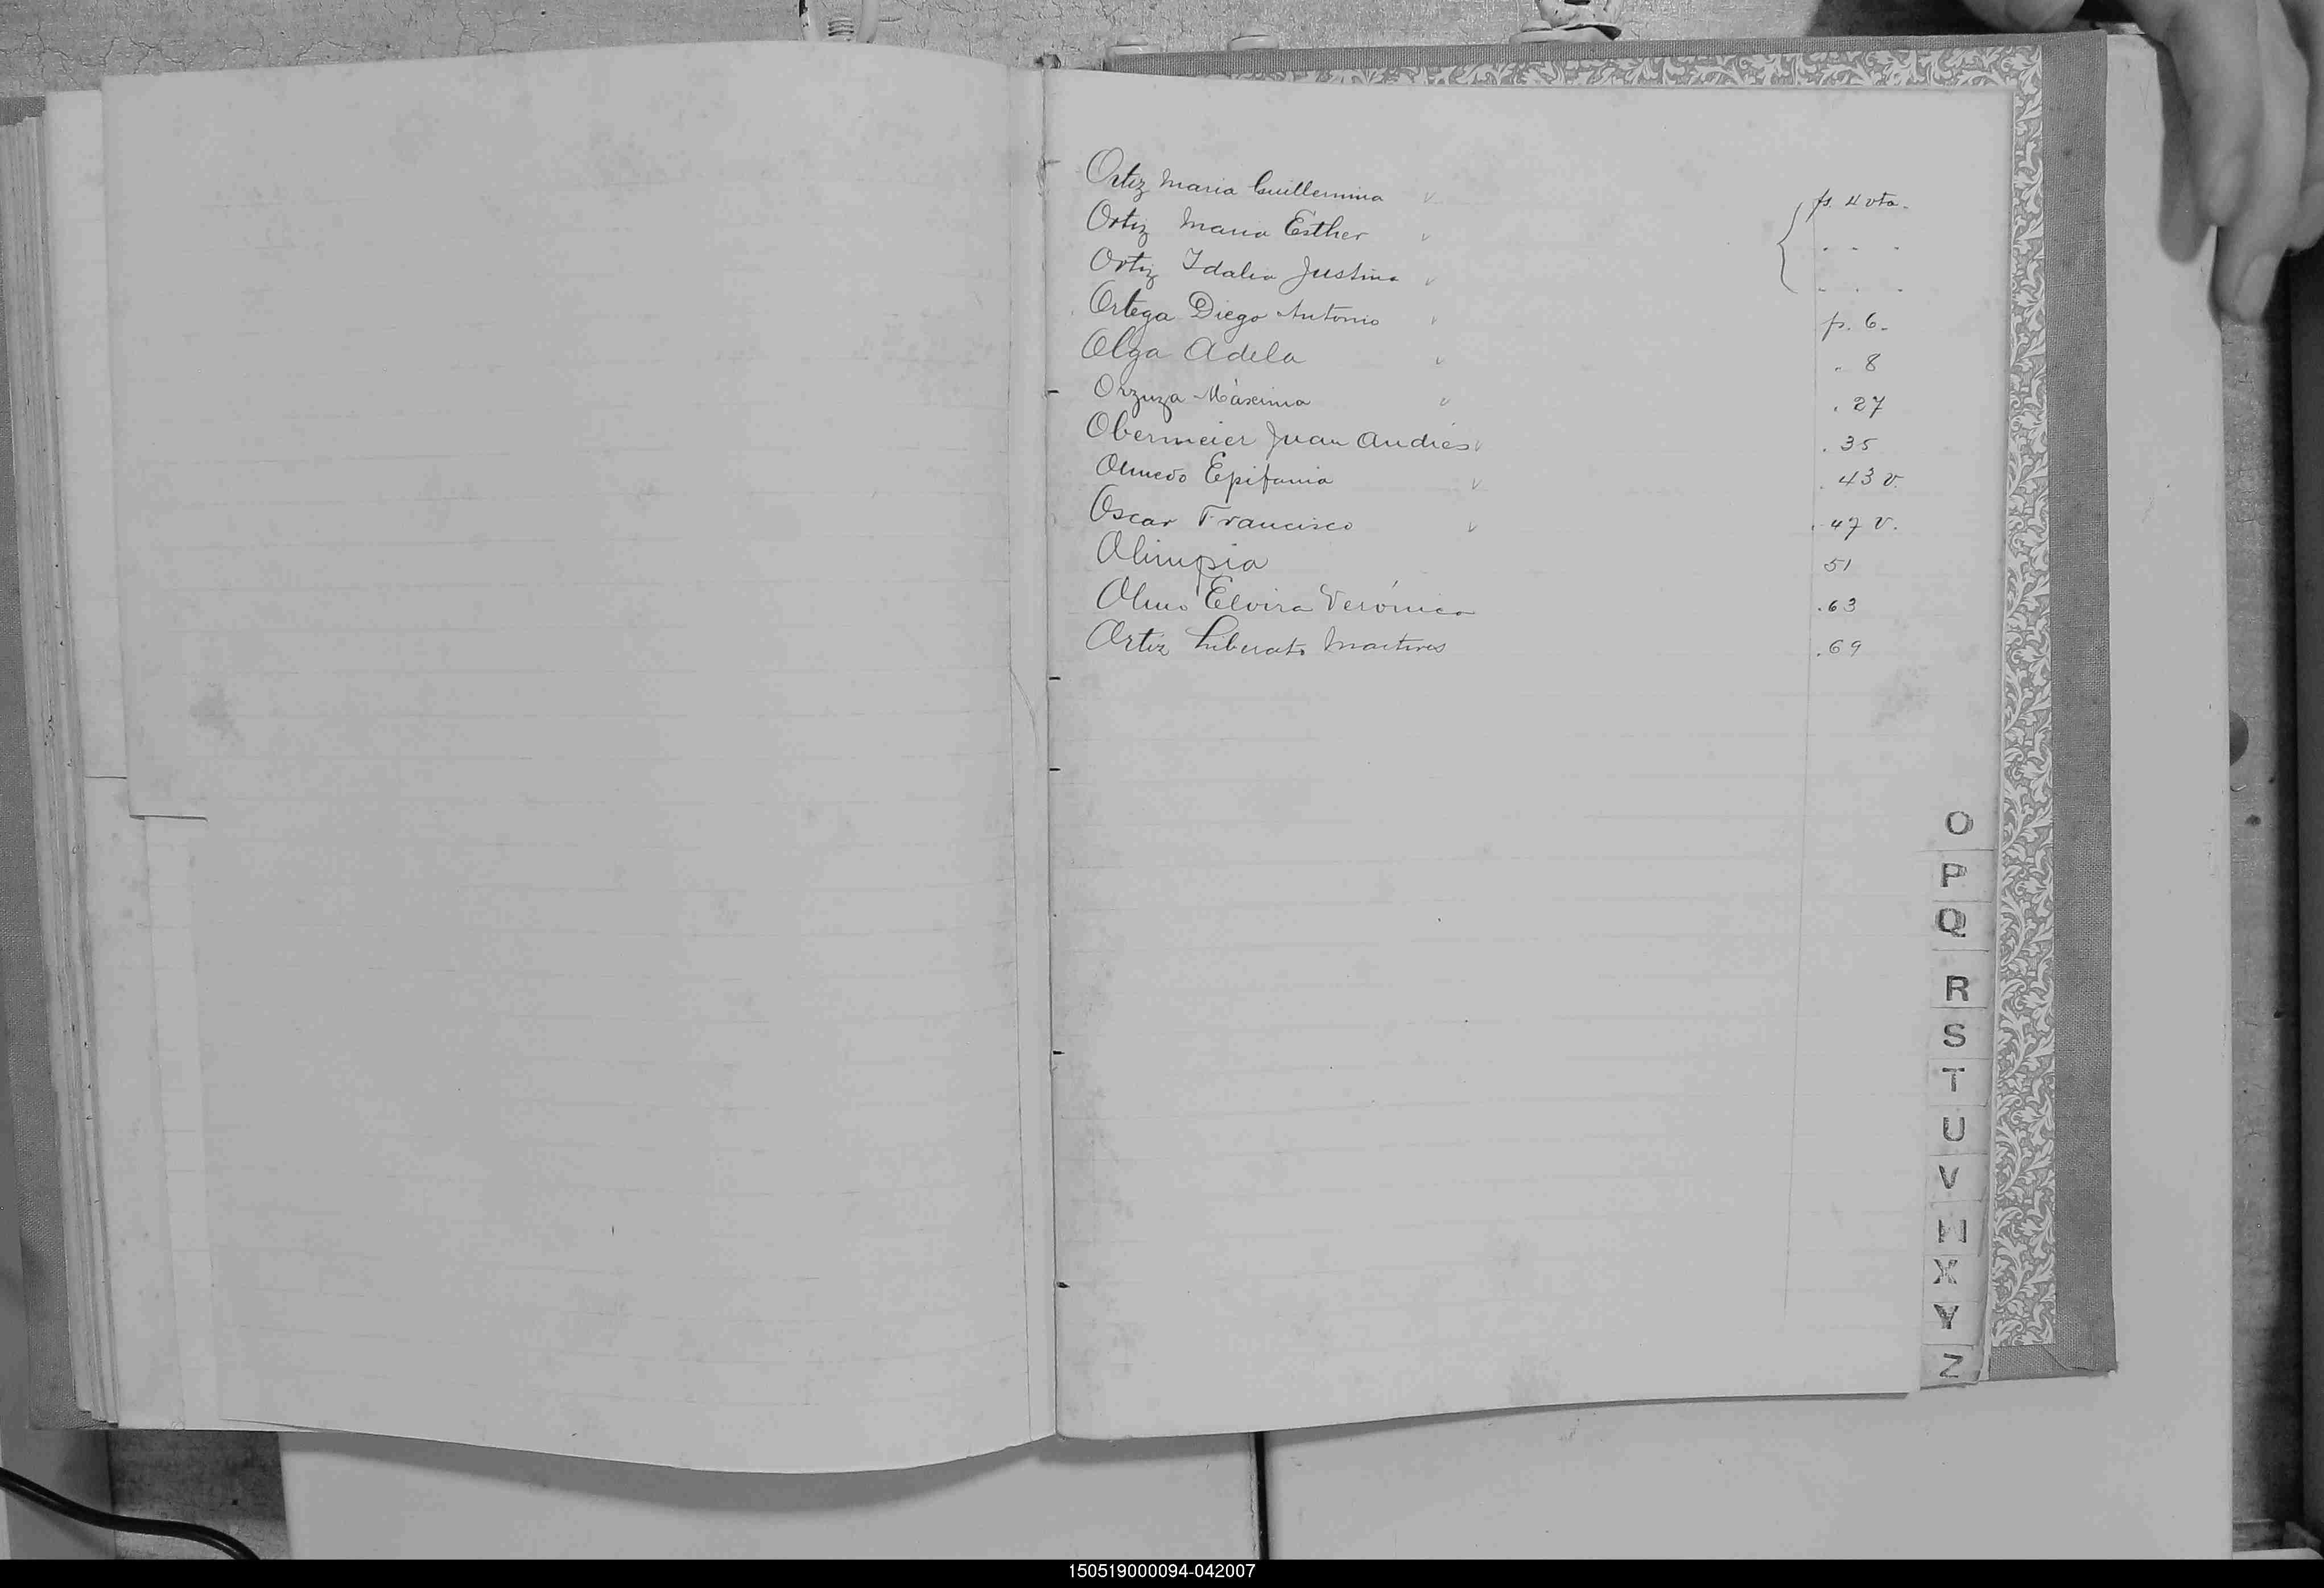 Ortiz Maria Guillermina v fs. 4 vta.
Ortiz Maria Esther v " " "
Ortiz Idalia Justina v " " "
Ortega Diego Antonio v fs. 6.
Olga Adela v " 8
Orzuza Máxima v " 27
Obermeier Juan Andrés v " 35
Olmedo Epifania v " 43 v.
Oscar Francisco v " 47 v.
Olimpia 51
Olmo Elvira Verónica . 63
Ortiz Liberato Martires . 69
O
P
Q
R
S
T
U
V
W
X
Y
Z
150519000094-042007